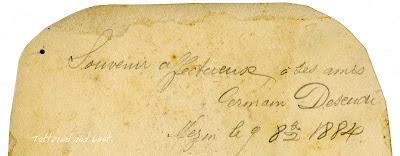 Souvenir affectueux à ses amis
Germain
Mézin le 9 8bre 1884
Tattered and Lost